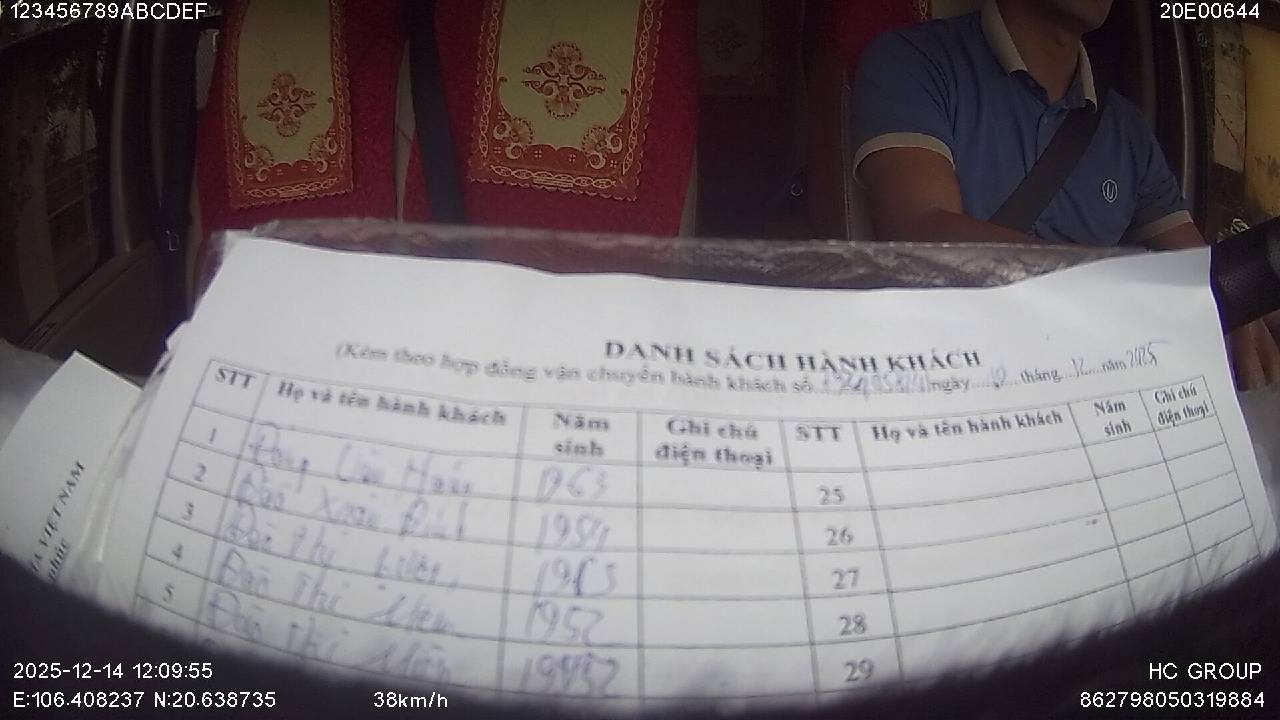 123456789ABCDEF
20E00644
DANH SÁCH HÀNH KHÁCH
(Kèm theo hợp đồng vận chuyển hành khách số ngày tháng 12 năm 2025
STT Họ và tên hành khách Năm sinh Ghi chú điện thoại STT Họ và tên hành khách Năm sinh Ghi chú điện thoại
1 1963 25
2 Đào Xuân 1954 26
3 Đào Thị 1963 27
4 Đào Thị 1952 28
5 Đào Thị 29
VIỆT NAM
phúc
2025-12-14 12:09:55
HC GROUP
E:106.408237 N:20.638735 38km/h
862798050319884